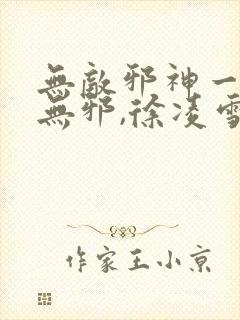 無敵邪神一
無邪,徐凌雪
作家王小京